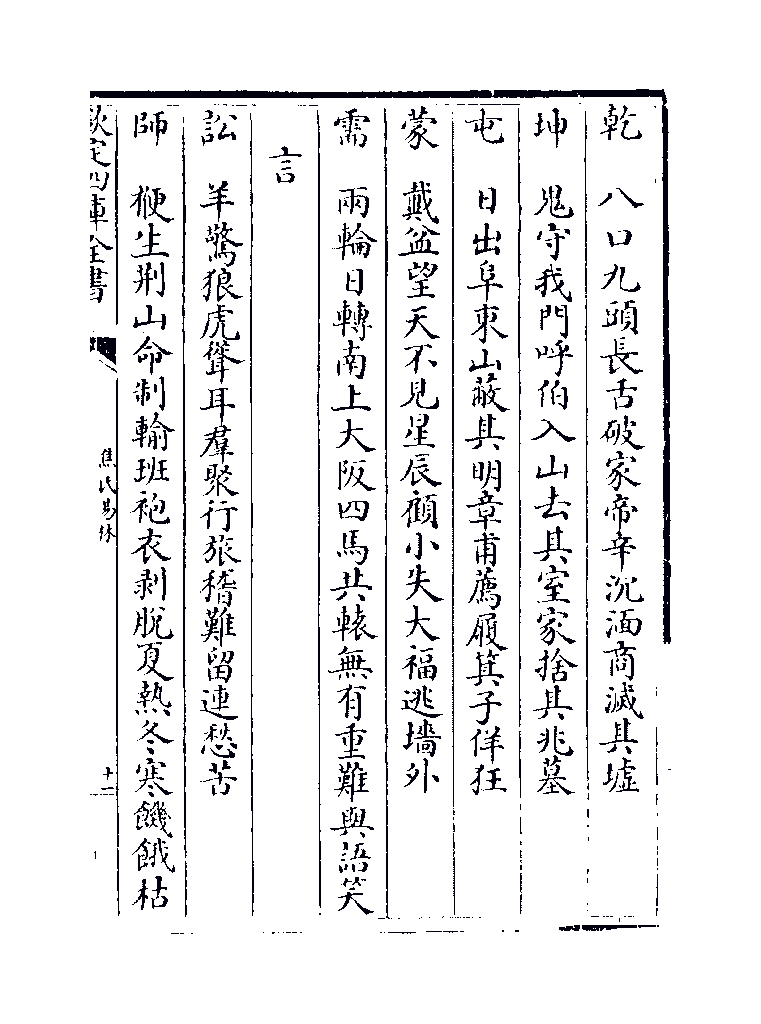 乾　八口九頭長舌破家帝辛沉湎商滅其墟
坤　鬼守我門呼伯入山去其室家捨其兆墓
屯　日出阜東山蔽其明章甫薦履箕子佯狂
蒙　戴盆望天不見星辰顧小失大福逃墻外
需　兩輪日轉南上大阪四馬共轅無有重難與語笑
言
訟　羊驚狼虎聳耳羣聚行旅稽難留連愁苦
師　楩生荆山命制輸班袍衣剥脫夏熱冬寒饑餓枯
欽定四庫全書
焦氏易林
十二